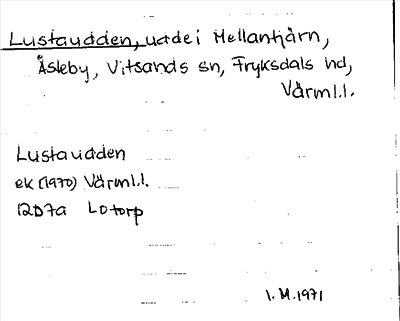 Lustaudden, udde i Mellantjärn,
Åsleby, Vitsands sn, Fryksdals hd,
Värml.l.
Lustaudden
ek (1970) Värml.l.
12D7a Lotorp
I.M.1971